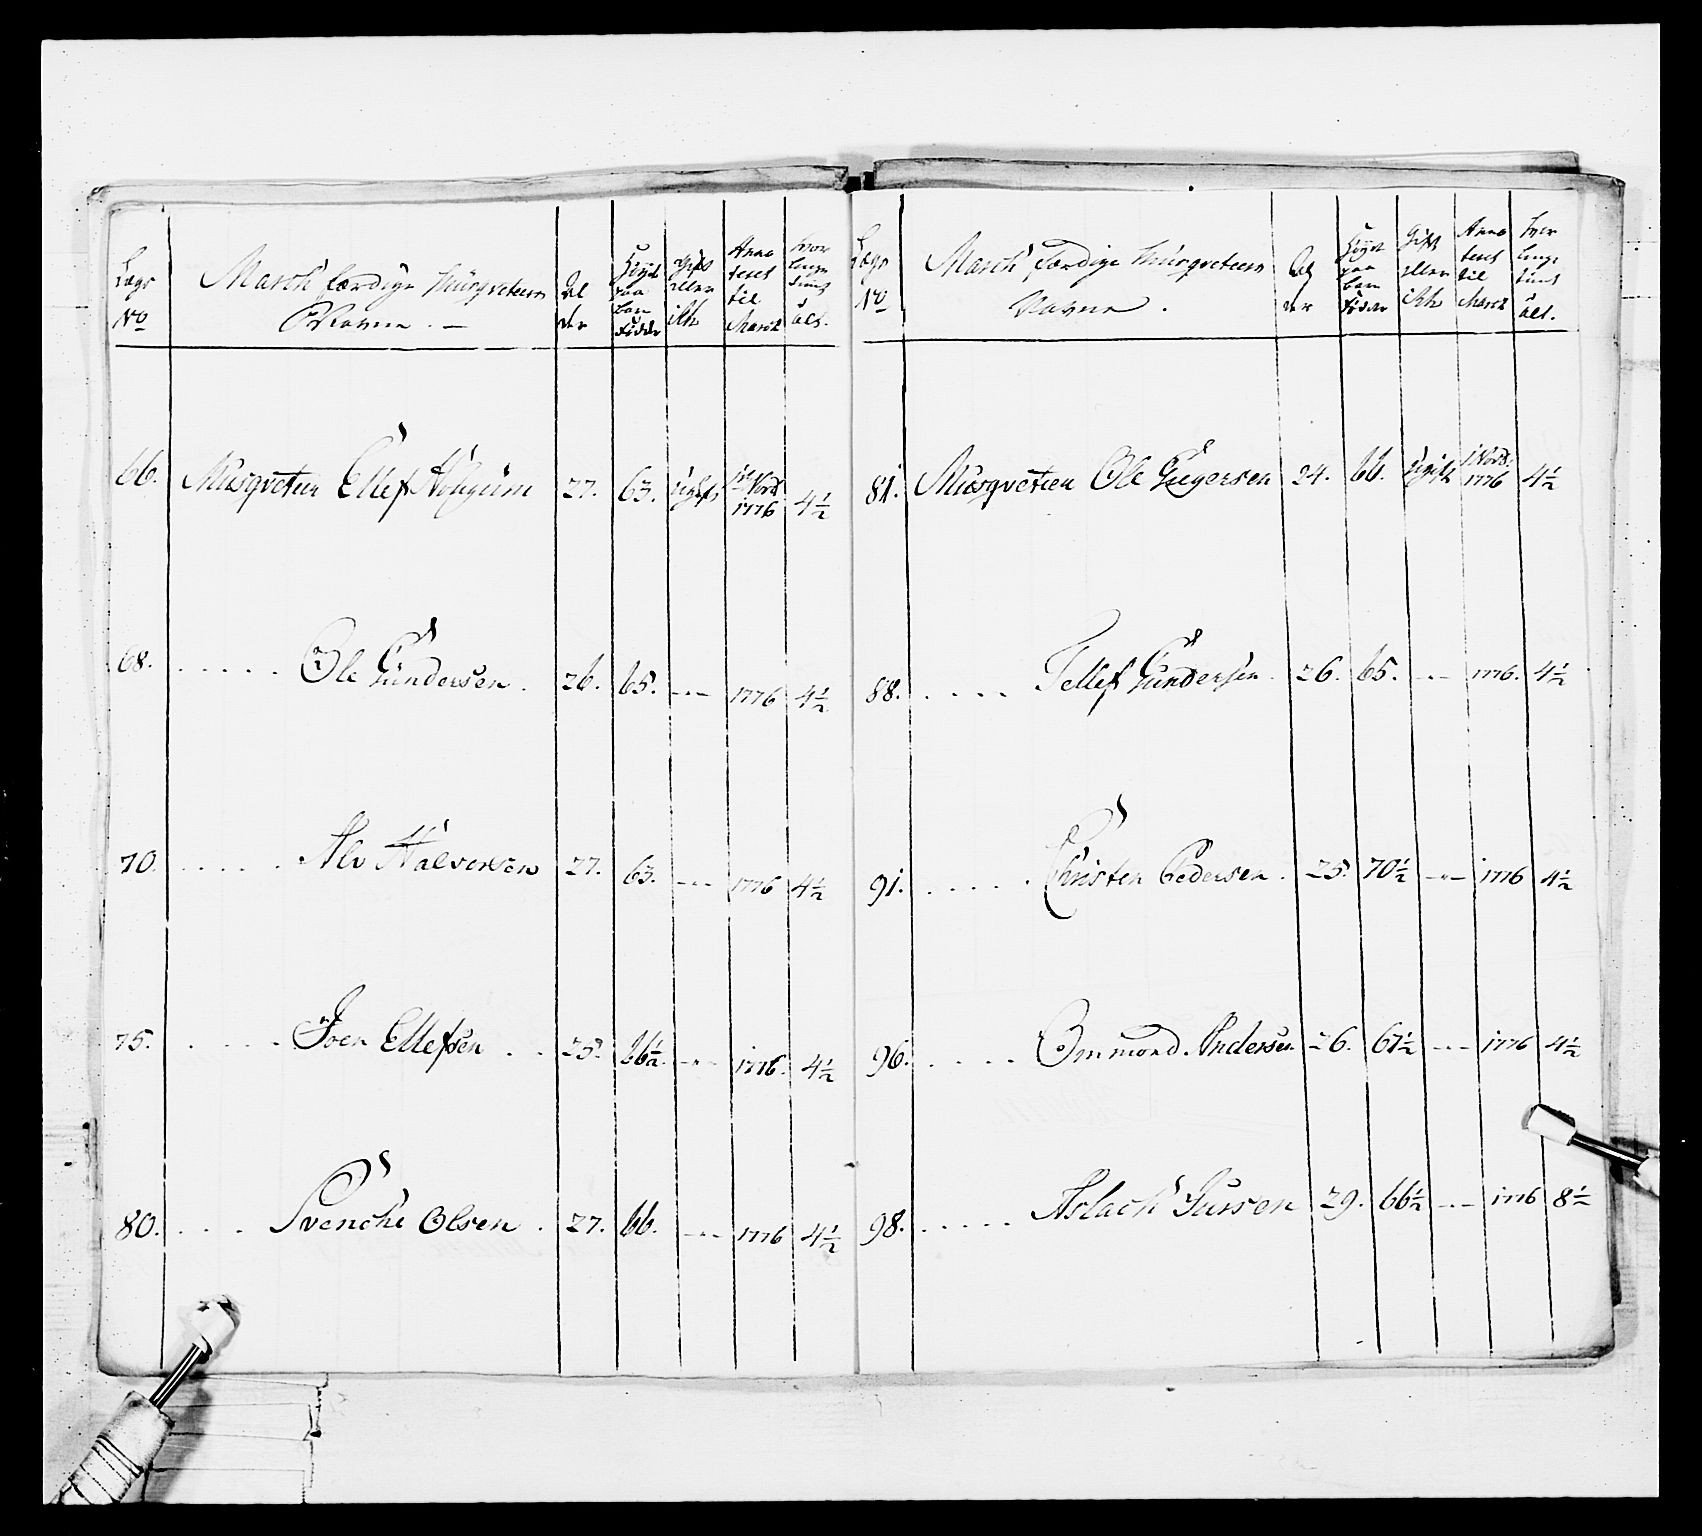 Lægs No | March færdige Musqveteer Navne. | Al der | Höyde paa bare Födder | Gift eller ikke | Anno tent til March | hvor længe tient i alt.
66. | Musqveteer Ellef Hougum | 27. | 63. | Ugift | 1ste Nov. 1776 | 4½
68. | Ole Gundersen. | 26. | 65. | -"- | 1776 | 4½
70. | Alv Halvorsen | 27. | 63. | -"- | 1776 | 4½
75. | Joen Ellefsen | 25. | 66½. | -"- | 1776. | 4½
80. | Svenche Olsen. | 27. | 66. | -"- | 1776 | 4½
Lægs No | March færdige Musqveteer Navne. | Al der | Höyde paa bare Föder | Gift eller ikke | Anno tent til March | hvor længe tient i alt.
81. | Musqveteer Ole Gregersen | 24. | 66. | Ugift | 1 Nov. 1776 | 4½
88. | Tellef Gundersen. | 26. | 65. | -"- | 1776. | 4½
91. | Christen Pedersen. | 25. | 70½ | -"- | 1776 | 4½
96. | Ommond Andersen | 26. | 67½ | -"- | 1776 | 4½
98. | Aslach | 29. | 66½ | -"- | 1776 | 8½